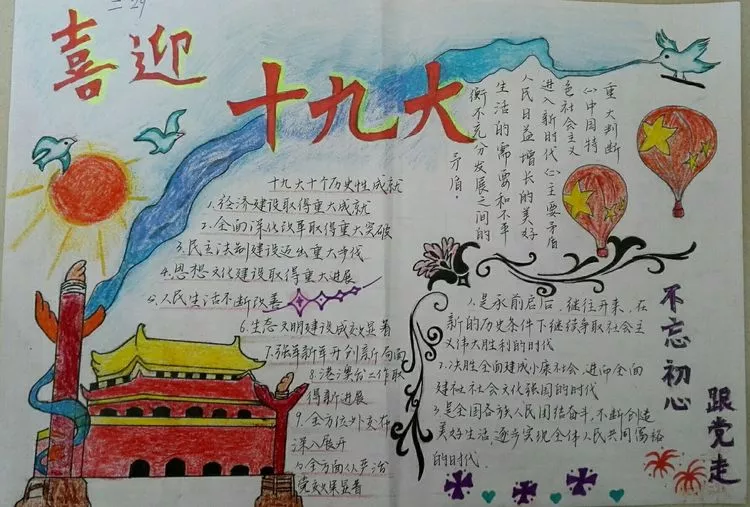 二·29
喜迎
十九大
十九大十个历史性成就
1、经济建设取得重大成就
2、全面深化改革取得重大突破
3、民主法制建设迈出重大步伐
4、思想文化建设取得重大进展
5、人民生活不断改善
6、生态文明建设成效显著
7、强军新军开创新局面
8、港澳台工作取
得新进展
9、全方位外交布
深入展开
10、全方面从严治
党效果显著
重大判断
(心中国特
色社会主义
进入新时代心主要矛盾
人民日益增长的美好
生活的需要和不平
衡不充分发展之间的
矛盾。
1、是承前启后、继往开来、在
新的历史条件下继续争取社会主
义伟大胜利的时代
2、决胜全面建成小康社会、进而全面
建社社会文化强国的时代
3、是全国各族人民团结奋斗、不断创造
美好生活,逐步实现全体人民共同富裕
的时代.
不忘初心
跟党走